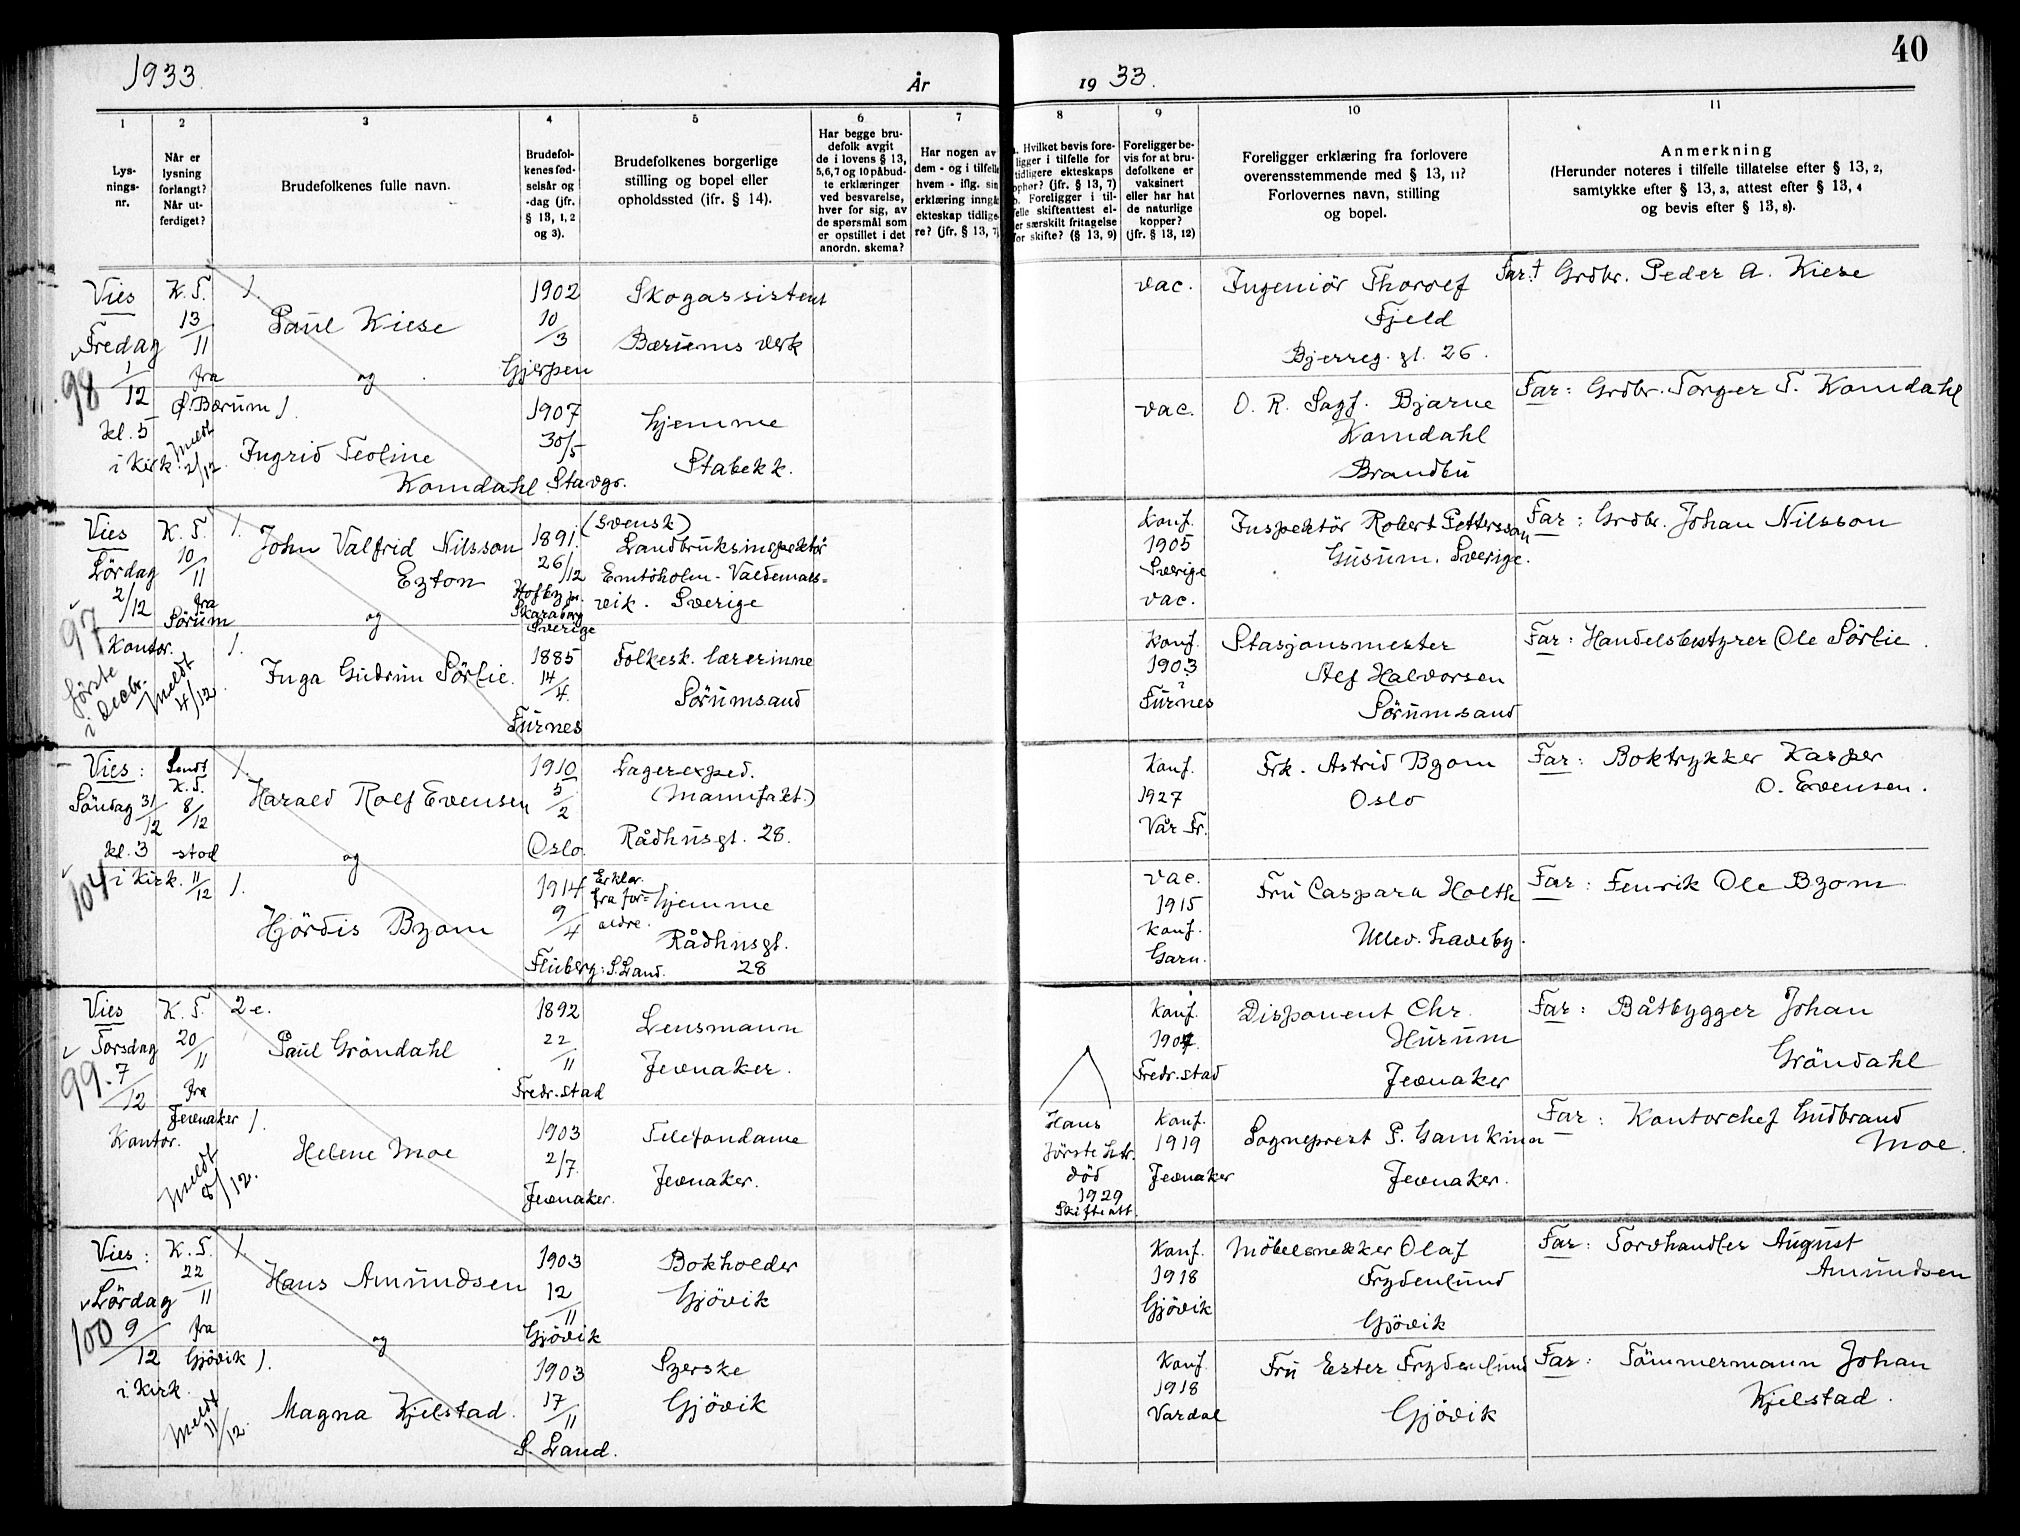 1933.
År
19 33.
40
1
2
3
4
5
6
7
8
9
10
11
Lys-
nings-
nr.
Når er
lysning
forlangt?
Når ut-
ferdiget?
Brudefolkenes fulle navn.
Brudefol-
kenes fød-
selsår og
-dag (jfr.
§ 13, 1, 2
og 3).
Brudefolkenes borgerlige
stilling og bopel eller
opholdssted (jfr. § 14).
Har begge bru-
defolk avgit
de i lovens § 13,
5,6,7 og 10 påbud-
te erklæringer
ved besvarelse,
hver for sig, av
de spørsmål som
er opstillet i det
anordn. skema?
Har nogen av
dem - og i tilfelle
hvem - iflg. sin
erklæring inngå
ekteskap tidlige-
re? (jfr. § 13, 7)
Hvilket bevis fore-
ligger i tilfelle for
tidligere ekteskaps
ophør? (jfr. § 13, 7)
b. Foreligger i til-
felle skifteattest el-
ler særskilt fritagelse
for skifte? (§ 13, 9)
Foreligger be-
vis for at bru-
defolkene er
vaksinert
eller har hat
de naturlige
kopper?
(jfr. § 13, 12)
Foreligger erklæring fra forlovere
overensstemmende med § 13, 11?
Forlovernes navn, stilling
og bopel.
Anmerkning
(Herunder noteres i tilfelle tillatelse efter § 13, 2,
samtykke efter § 13, 3, attest efter § 13, 4
og bevis efter § 13, 8).
Vies
Fredag
1/12
98
kl. 5
i Kirk.
K. T.
13/11
fra
Ø. Bærum
Meldt
2/12
1.
Paul Kiese
og
1.
Ingrid Teoline
Komdahl
1902
10/3
Gjerpen
1907
30/5
Stavgr.
Skogassistent
Bærums Verk
hjemme
Stabekk.
vac.
vac.
Ingeniör Thorolf
Fjeld
Bjerreg. gt. 26.
O. R. Sagf. Bjarne
Komdahl
Brandbu
Far:† Grdbr. Peder A. Kiese
Far: Grdbr. Torger T. Komdahl
Vies
Lördag
2/12
97
Kontor.
første
i decbr.
K. T.
10/11
fra
Sörum
Meldt
4/12
1.
John Valfrid Nilsson
Ezton
og
1.
Inga Gudrun Sörlie.
1891.
26/12
Skaraborg
Sverige
1885
14/4.
Furnes
(svensk)
Landbruksinspektör
Emtöholm - Valdemars=
vik. Sverige
Folkesk. lærerinne
Sörumsand
Konf.
1905
Sverige
vac.
Konf.
1903
?
Furnes
Inspektör Robert Pettersson
Gusum. Sverige.
Stasjonsmester
Alf Halvorsen
Sörumsand
Far: Grdbr. Johan Nilsson
Far: Handelsbestyrer Ole Sörlie.
Vies:
Söndag 31/12
kl. 3
i Kirk.
104
Sendt
K. T.
8/12
stod
11/12
1.
Harald Rolf Evensen
og
1.
Hjördis Bzom
1910
5/2
Oslo.
1914
9/4
Fluberg: S. Land.
Lagerexped.
(Manufakt.)
Rådhusgt. 28.
Erklær.
fra for=
eldre.
hjemme
Rådhusgt.
28
Konf.
1927
Vår Fr.
vac.
1915
Konf.
Garn.
Frk. Astrid Bzom
Oslo
Fru Caspara Holth
Ullev. Haveby.
Far: Boktrykker Kasper
O. Evensen.
Far: Fenrik Ole Bzom
Vies
Torsdag
7/12
99.
Kontor.
K. T.
20/11
fra
Jevnaker
Meldt
8/12.
2 e.
Paul Gröndahl
1.
Helene Moe
1892
22/11
Fredr.stad
1903
2/7.
Jevnaker.
Lensmann
Jevnaker.
Telefondame
Jevnaker.
Hans
förste htr.
död
1929
Skifteatt.
Konf.
1907.
Fredr.stad
Konf.
1919
Jevnaker
Disponent Chr.
Hurum
Jevnaker
Sogneprest P. Gamkinn
Jevnaker.
Far: Båtbygger Johan
Gröndahl
Far: Kontorchef Gudbrand
Moe.
Vies:
Lördag
9/12
100
i Kirk.
K. T.
22/11
fra
Gjövik
Meldt
11/12.
1.
Hans Amundsen
og
1.
Magna Kjelstad.
1903
12/11
Gjövik
1903
17/11
S. Land.
Bokholder
Gjövik
Syerske
Gjövik
Konf.
1918
Gjövik
Konf.
1918
Vardal
Möbelsnekker Olaf
Frydenlund
Gjövik
Fru Ester Frydenlund
Gjövik
Far: Torvhandler August
Amundsen
Far: Tömmermann Johan
Kjelstad.